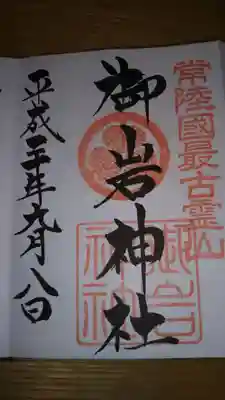 常陸國最古霊山
御岩神社
御岩神社
平成二年九月八日